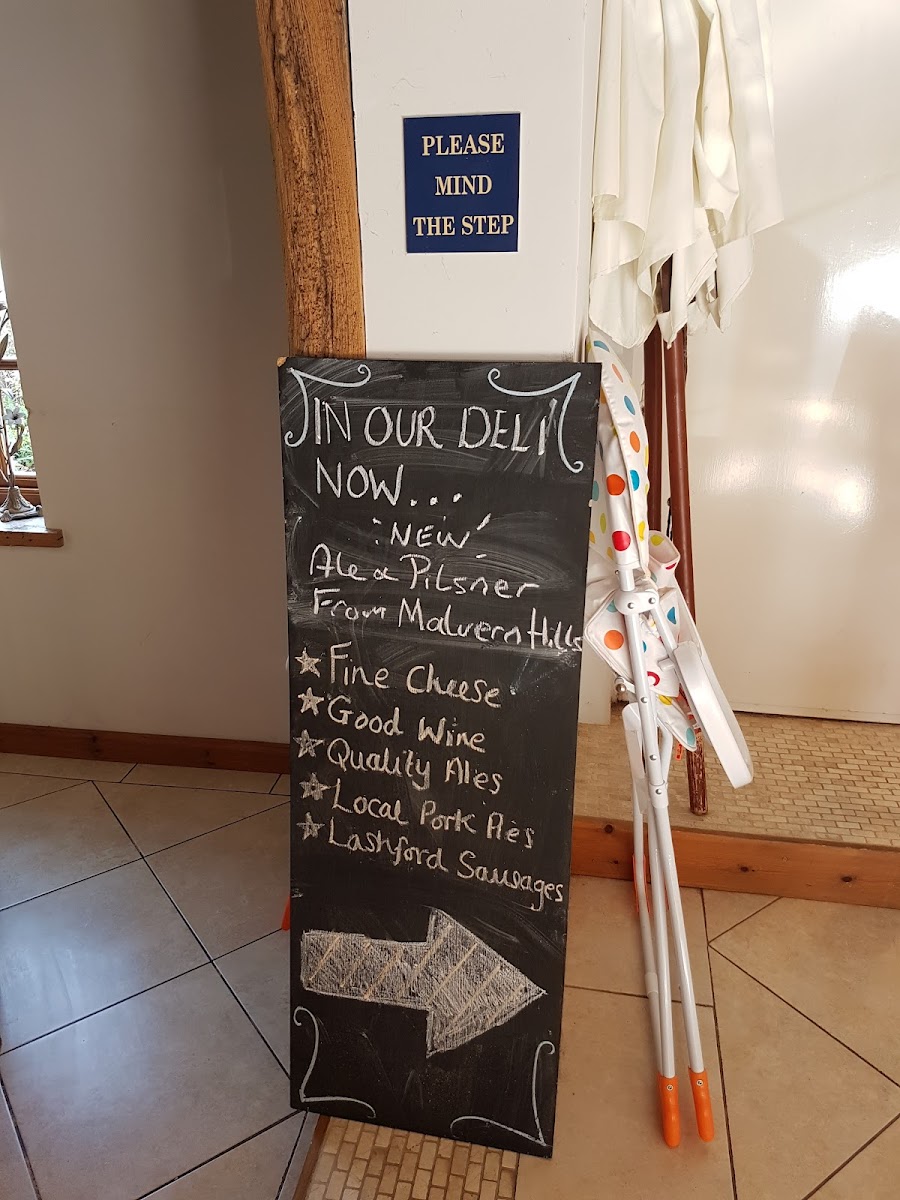 PLEASE
MIND
THE STEP
IN OUR DELI
NOW...
'NEW'
Ale & Pilsner
From Malvern Hills
Fine Cheese
Good Wine
Quality Ales
Local Pork Pies
Lashford Sausages